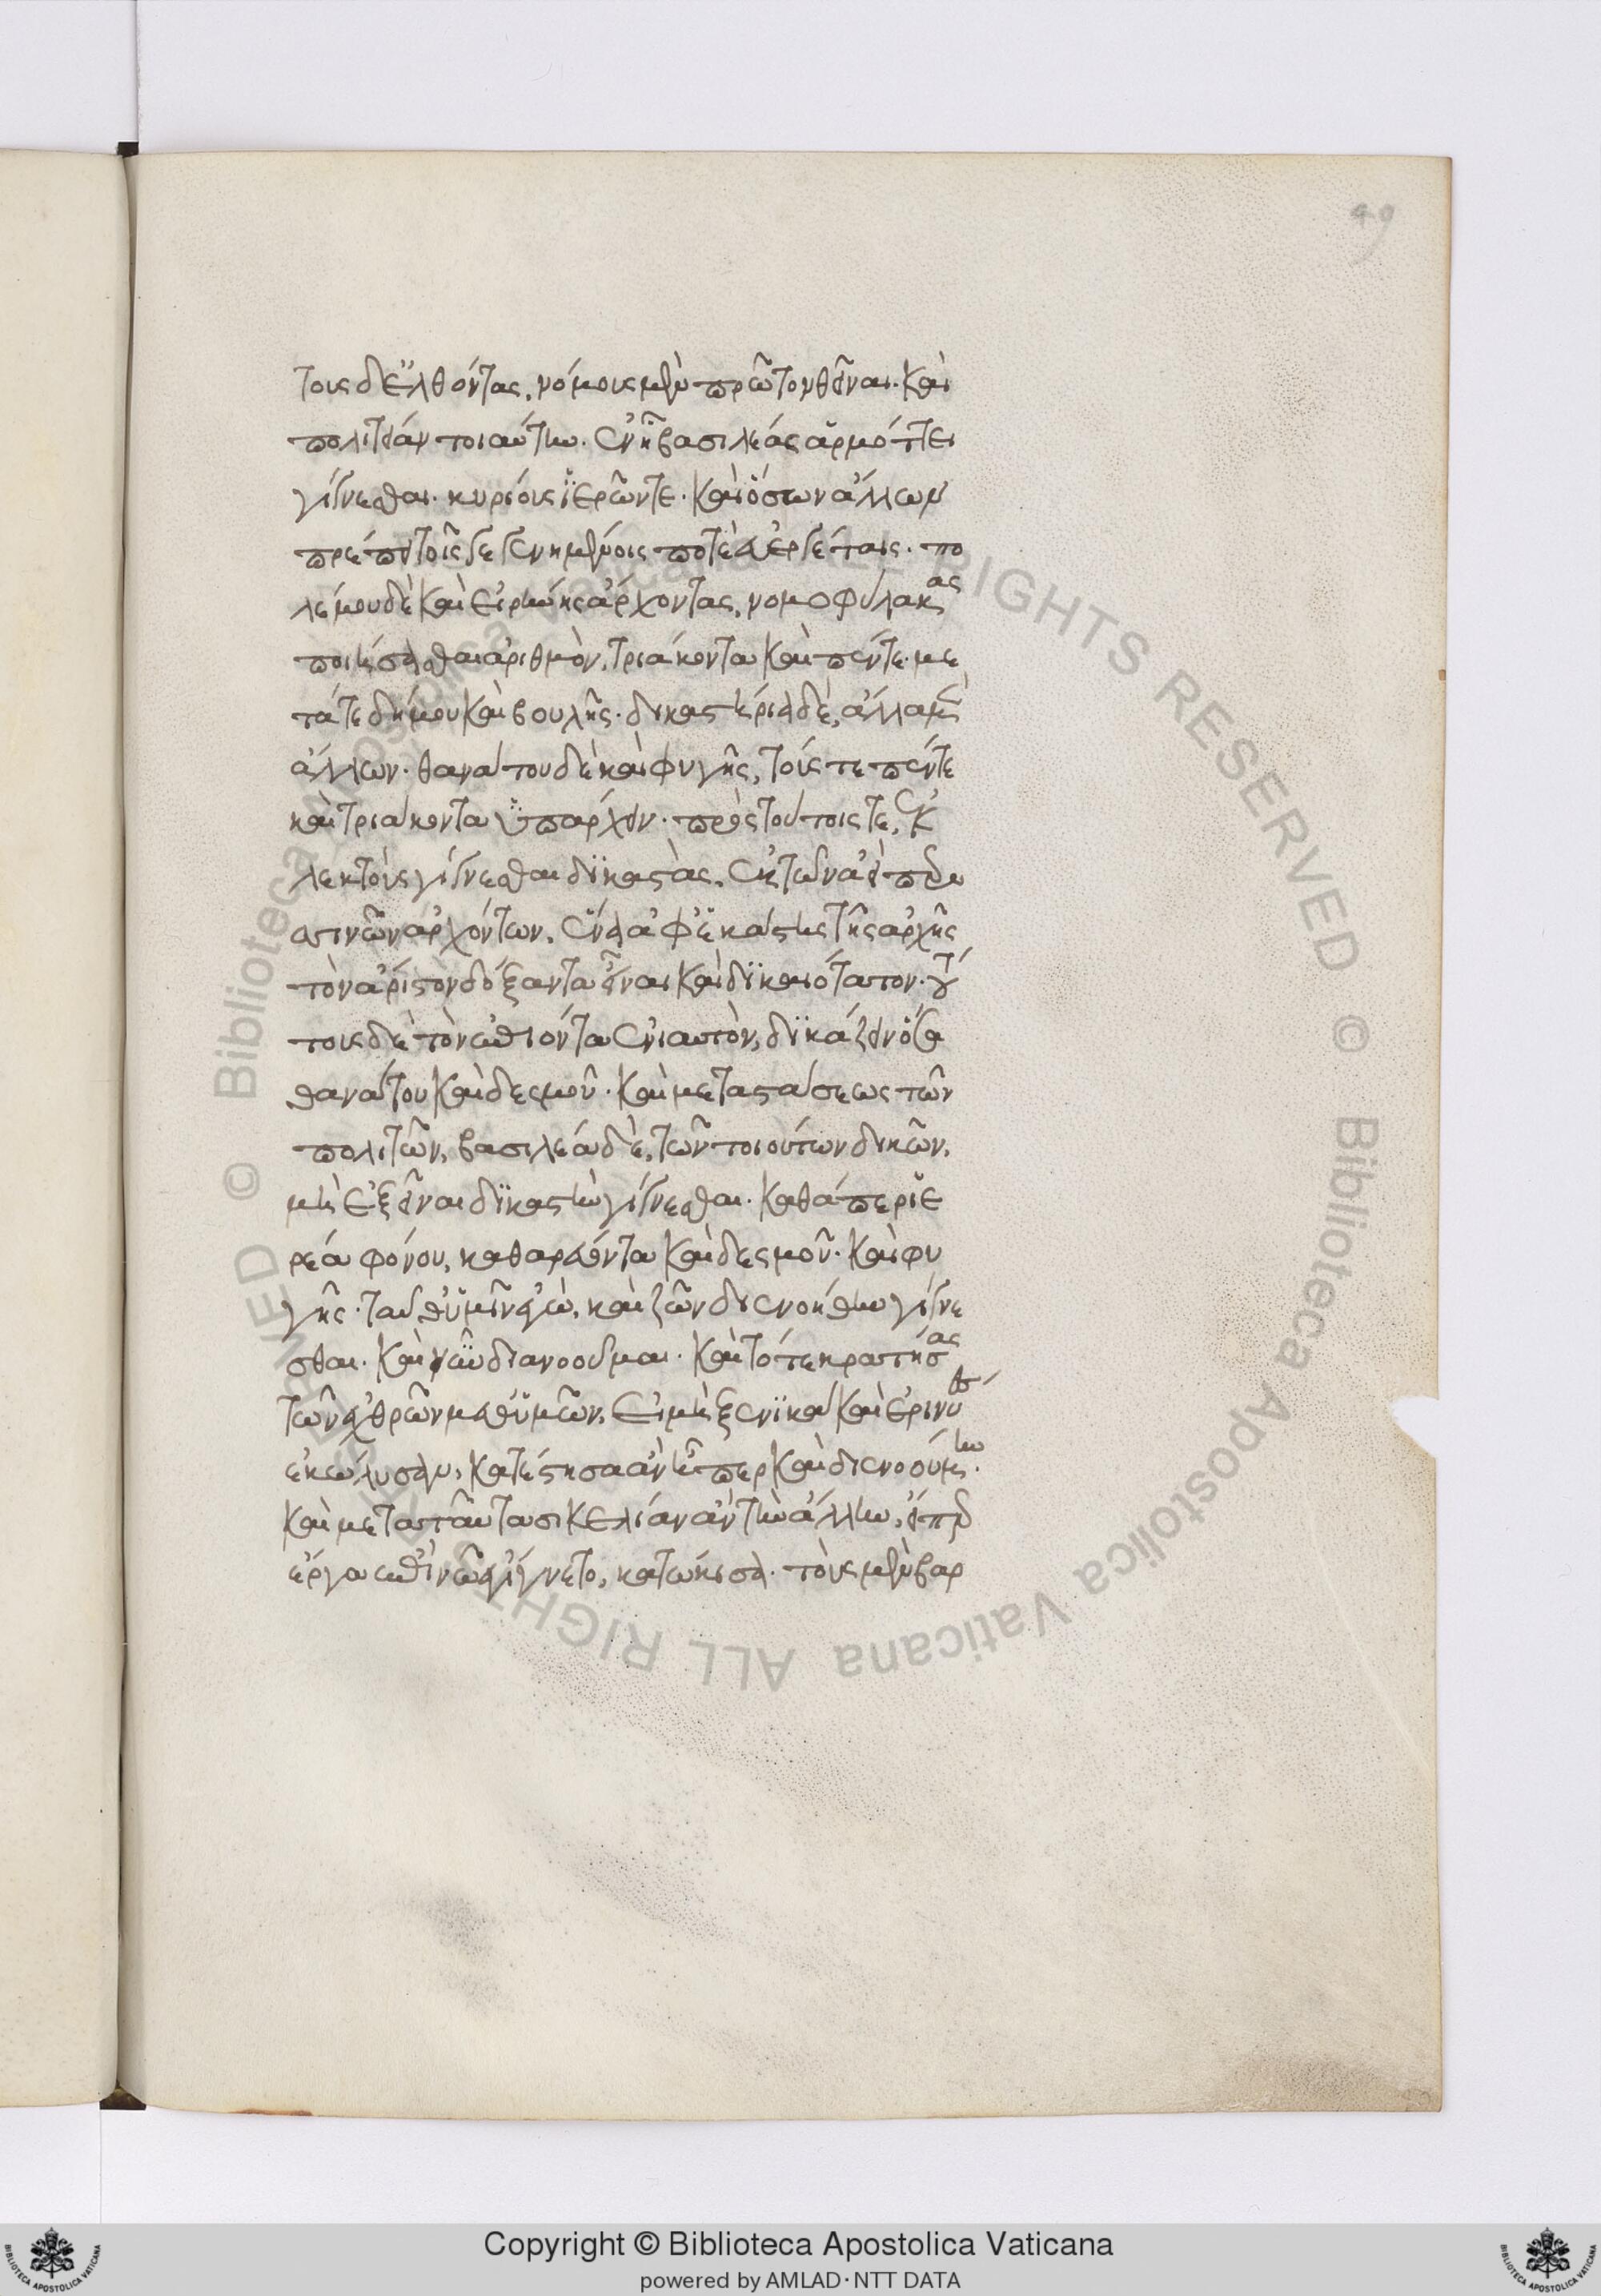 49
τους δὲ ἐλθόντας, νόμους μὲν πρῶτον θεῖναι. καὶ
πολιτείαν τοιαύτην. ἐν ᾗ βασιλέας ἁρμόττει
γίγνεσθαι. κυρίους ἱερῶν τε. καὶ ὅσων ἄλλων
πρέπει τοῖς γεγενημένοις ποτὲ εὐεργέταις. πο
λέμου δὲ καὶ εἰρήνης ἄρχοντας, νομοφύλακας
ποιήσασθαι ἀριθμὸν, τριάκοντα καὶ πέντε. με
τά τε δήμου καὶ βουλῆς. δικαστήρια δὲ, ἄλλα μὲν
ἄλλων. θανάτου δὲ καὶ φυγῆς, τούς τε πέντε
καὶ τριάκοντα ὑπάρχειν. πρὸς τούτοις τε, ἐκ
λεκτοὺς γίγνεσθαι δικαστὰς, ἐκ τῶν ἀεὶ περυ
σινῶν ἀρχόντων, ἕνα ἀφ' ἑκάστης τῆς ἀρχῆς
τὸν ἄριστον δόξαντα εἶναι καὶ δικαιότατον. τού
τους δὲ τὸν ἐπιόντα ἐνιαυτὸν, δικάζειν ὅσα
θανάτου καὶ δεσμοῦ. καὶ μεταστάσεως τῶν
πολιτῶν, βασιλέα δὲ, τῶν τοιούτων δικῶν,
μὴ ἐξεῖναι δικαστὴν γίγνεσθαι. καθάπερ ἱε
ρέα φόνου, καθαρεύοντα καὶ δεσμοῦ. καὶ φυ
γῆς. ταῦθ' ὑμῖν ἐγὼ, καὶ ζῶν διενοήθην γίγνε
σθαι. καὶ νῦν διανοοῦμαι. καὶ τότε κρατήσας
τῶν ἐχθρῶν μεθ' ὑμῶν, εἰ μὴ ξενικαὶ καὶ ἐρινύες
ἐκώλυσαν, κατέστησα ἂν ᾗπερ καὶ διενοούμην.
καὶ μετὰ ταῦτα σικελίαν ἂν τὴν ἄλλην, εἴπερ
ἔργα ἐπὶ νῷ ἐγίγνετο, κατῴκισα. τοὺς μὲν βαρ
Copyright © Biblioteca Apostolica Vaticana
powered by AMLAD·NTT DATA
© Biblioteca Apostolica Vaticana ALL RIGHTS RESERVED
© Biblioteca Apostolica Vaticana ALL RIGHTS RESERVED